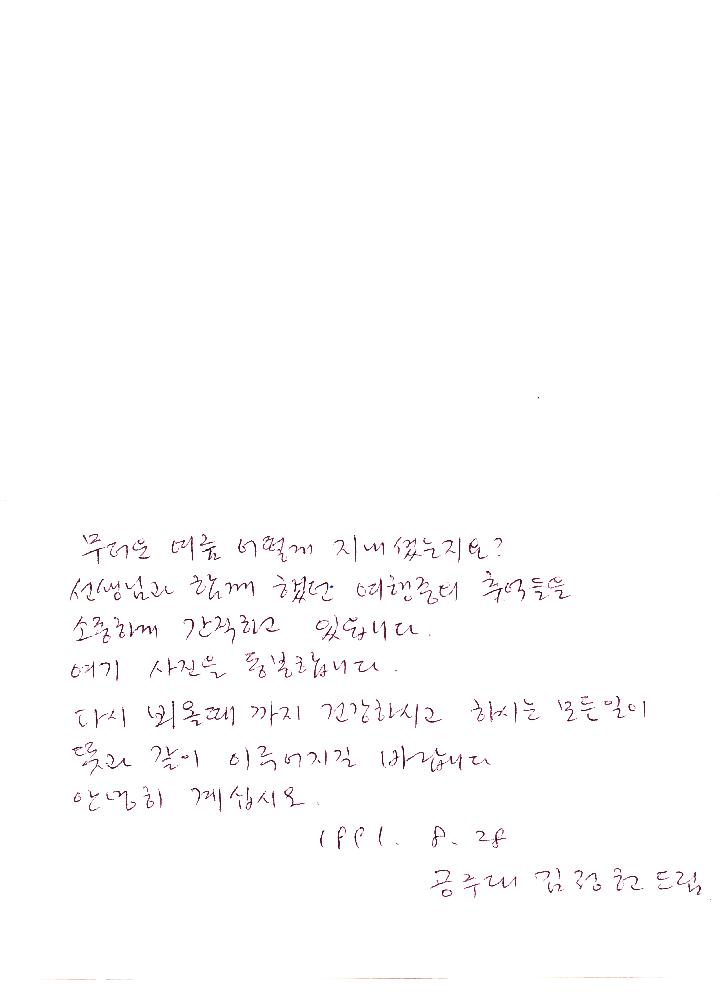 무더운 여름 어떻게 지내셨는지요?
선생님과 함께 했던 여행중의 추억들을
소중하게 간직하고 있읍니다.
여기 사진을 동봉합니다.
다시 뵈올때 까지 건강하시고 하시는 모든일이
뜻과 같이 이루어지길 바랍니다
안녕히 계십시오.
1991. 8. 28
공주대 김정헌 드림